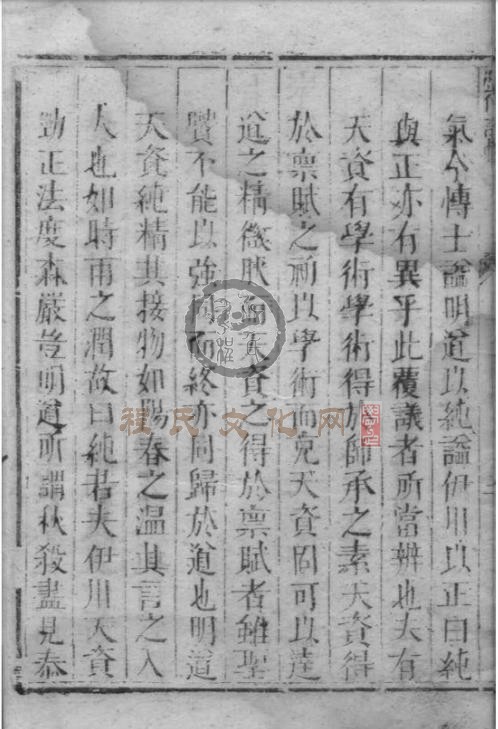 氣今博士謚明道以純謚伊川以正曰純
與正亦有異乎此覆議者所當辨也夫有
天資有學術學術得於師承之素天資得
於禀賦之初以學術而充天資固可以造
道之精微然而天資之得於禀賦者雖聖
賢不能以強同而終亦同歸於道也明道
天資純精其接物如陽春之温其言之入
人也如時雨之潤故曰純若夫伊川天資
勁正法度森嚴豈明道所謂秋殺盡見泰
程氏文化网